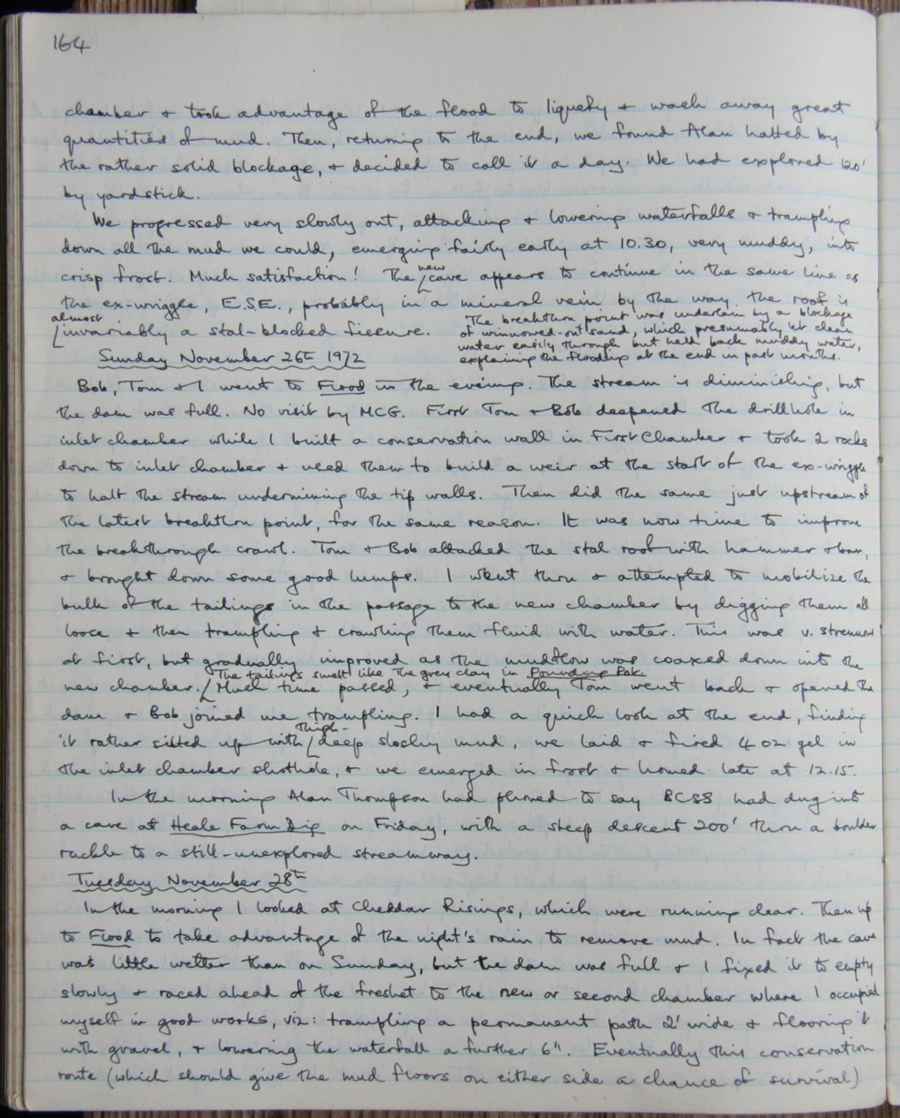 164
chamber + took advantage of the flood to liquefy + wash away great
quantities of mud. Then, returning to the end, we found Alan halted by
the rather solid blockage, + decided to call it a day. We had explored 120'
by yardstick.
We progressed very slowly out, attacking + lowering waterfalls + trampling
down all the mud we could, emerging fairly early at 10.30, very muddy, into
crisp frost. Much satisfaction! The new cave appears to continue in the same line as
the ex-wriggle, E.S.E., probably in a mineral vein by the way the roof is
almost invariably a stal-blocked fissure.
The breakthrn point was underlain by a blockage
of winnowed-out sand, which presumably let clean
water easily through but held back muddy water,
explaining the flooding at the end in past months.
Sunday November 26th 1972
Bob, Tom + I went to Flood in the evening. The stream is diminishing, but
the dam was full. No visit by MCG. First Tom + Bob deepened the drillhole in
inlet chamber while I built a conservation wall in First Chamber + took 2 rocks
down to inlet chamber + used them to build a weir at the start of the ex-wriggle
to halt the stream undermining the tip walls. Then did the same just upstream of
the latest breakthrn point, for the same reason. It was now time to improve
the breakthrough crawl. Tom + Bob attacked the stal roof with hammer + bar,
+ brought down some good lumps. I went thru + attempted to mobilize the
bulk of the tailings in the passage to the new chamber by digging them all
loose + then trampling + crawling them fluid with water. This was v. strenuous
at first, but gradually improved as the mudflow was coaxed down into the
new chamber. The tailings smelt like the grey clay in Pounding Pot.
Much time passed, + eventually Tom went back + opened the
dam + Bob joined me trampling. I had a quick look at the end, finding
it rather silted up with thigh-deep sloshy mud, we laid + fired 4 oz gel in
the inlet chamber shothole, + we emerged in frost + homed late at 12.15.
In the morning Alan Thompson had phoned to say BCSS had dug into
a cave at Heale Farm Dig on Friday, with a steep descent 200' thru a boulder
ruckle to a still-unexplored streamway.
Tuesday November 28th
In the morning I looked at Cheddar Risings, which were running clear. Then up
to Flood to take advantage of the night's rain to remove mud. In fact the cave
was little wetter than on Sunday, but the dam was full + I fixed it to empty
slowly + raced ahead of the freshet to the new or second chamber where I occupied
myself in good works, viz: trampling a permanent path 2' wide + flooring it
with gravel, + lowering the waterfall a further 6". Eventually this conservation
route (which should give the mud floors on either side a chance of survival)